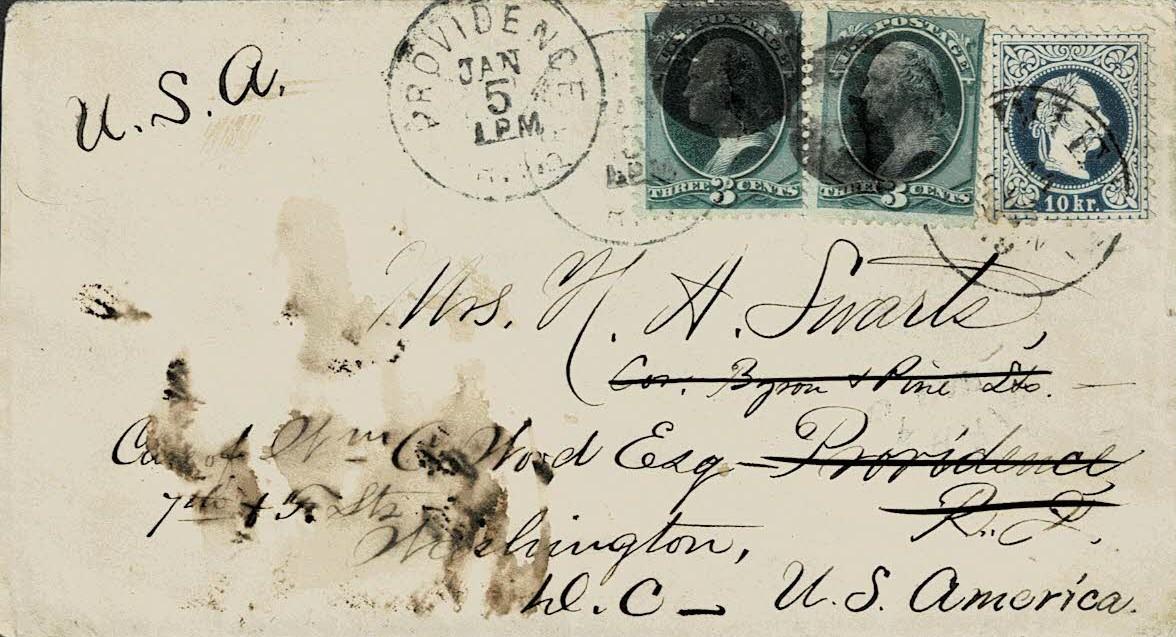 U.S.A.
PROVIDENCE
JAN
5
1 PM
R.I.
U.S. POSTAGE
THREE 3 CENTS
U.S. POSTAGE
THREE 3 CENTS
10 kr.
Mrs. H. A. Swarts,
Cor. Byron & Pine Sts.
Care of Wm C. Wood Esq - Providence
R.I.
7th & F. Sts
Washington,
D.C - U.S. America.